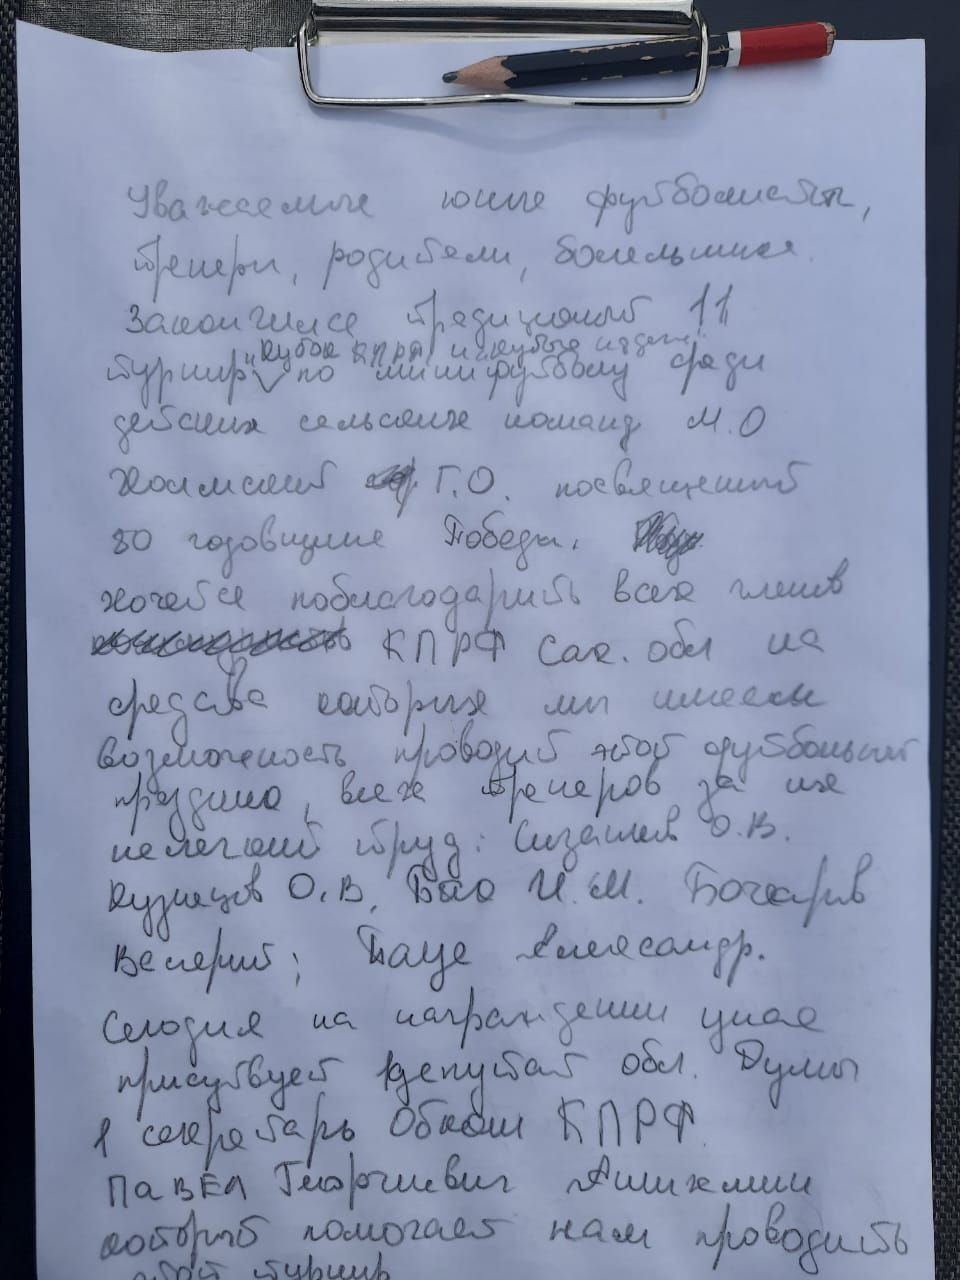 Уважаемые юные футболисты,
тренеры, родители, болельщики.
Закончился традиционый 11
"Кубок КПРФ"
турнир по мини футболу среди
детских сельских команд М.О
Холмский Г.О. посвященый
80 годовщине Победы.
хочется поблагодарить всех членов
КПРФ Сах. обл на
средства которых мы имеем
возможность проводит этот футбольный
праздник, всех тренеров за их
нелегкий труд: О.В.
Кузнецов О.В, Бао И.М. Бочкарев
Валерий; Александр.
Сегодня на награждении у нас
присутвует депутат обл. Думы
1 секретарь Обкома КПРФ.
Павел Георгиевич Ашихмин
который помогает нам проводить
этот турнир